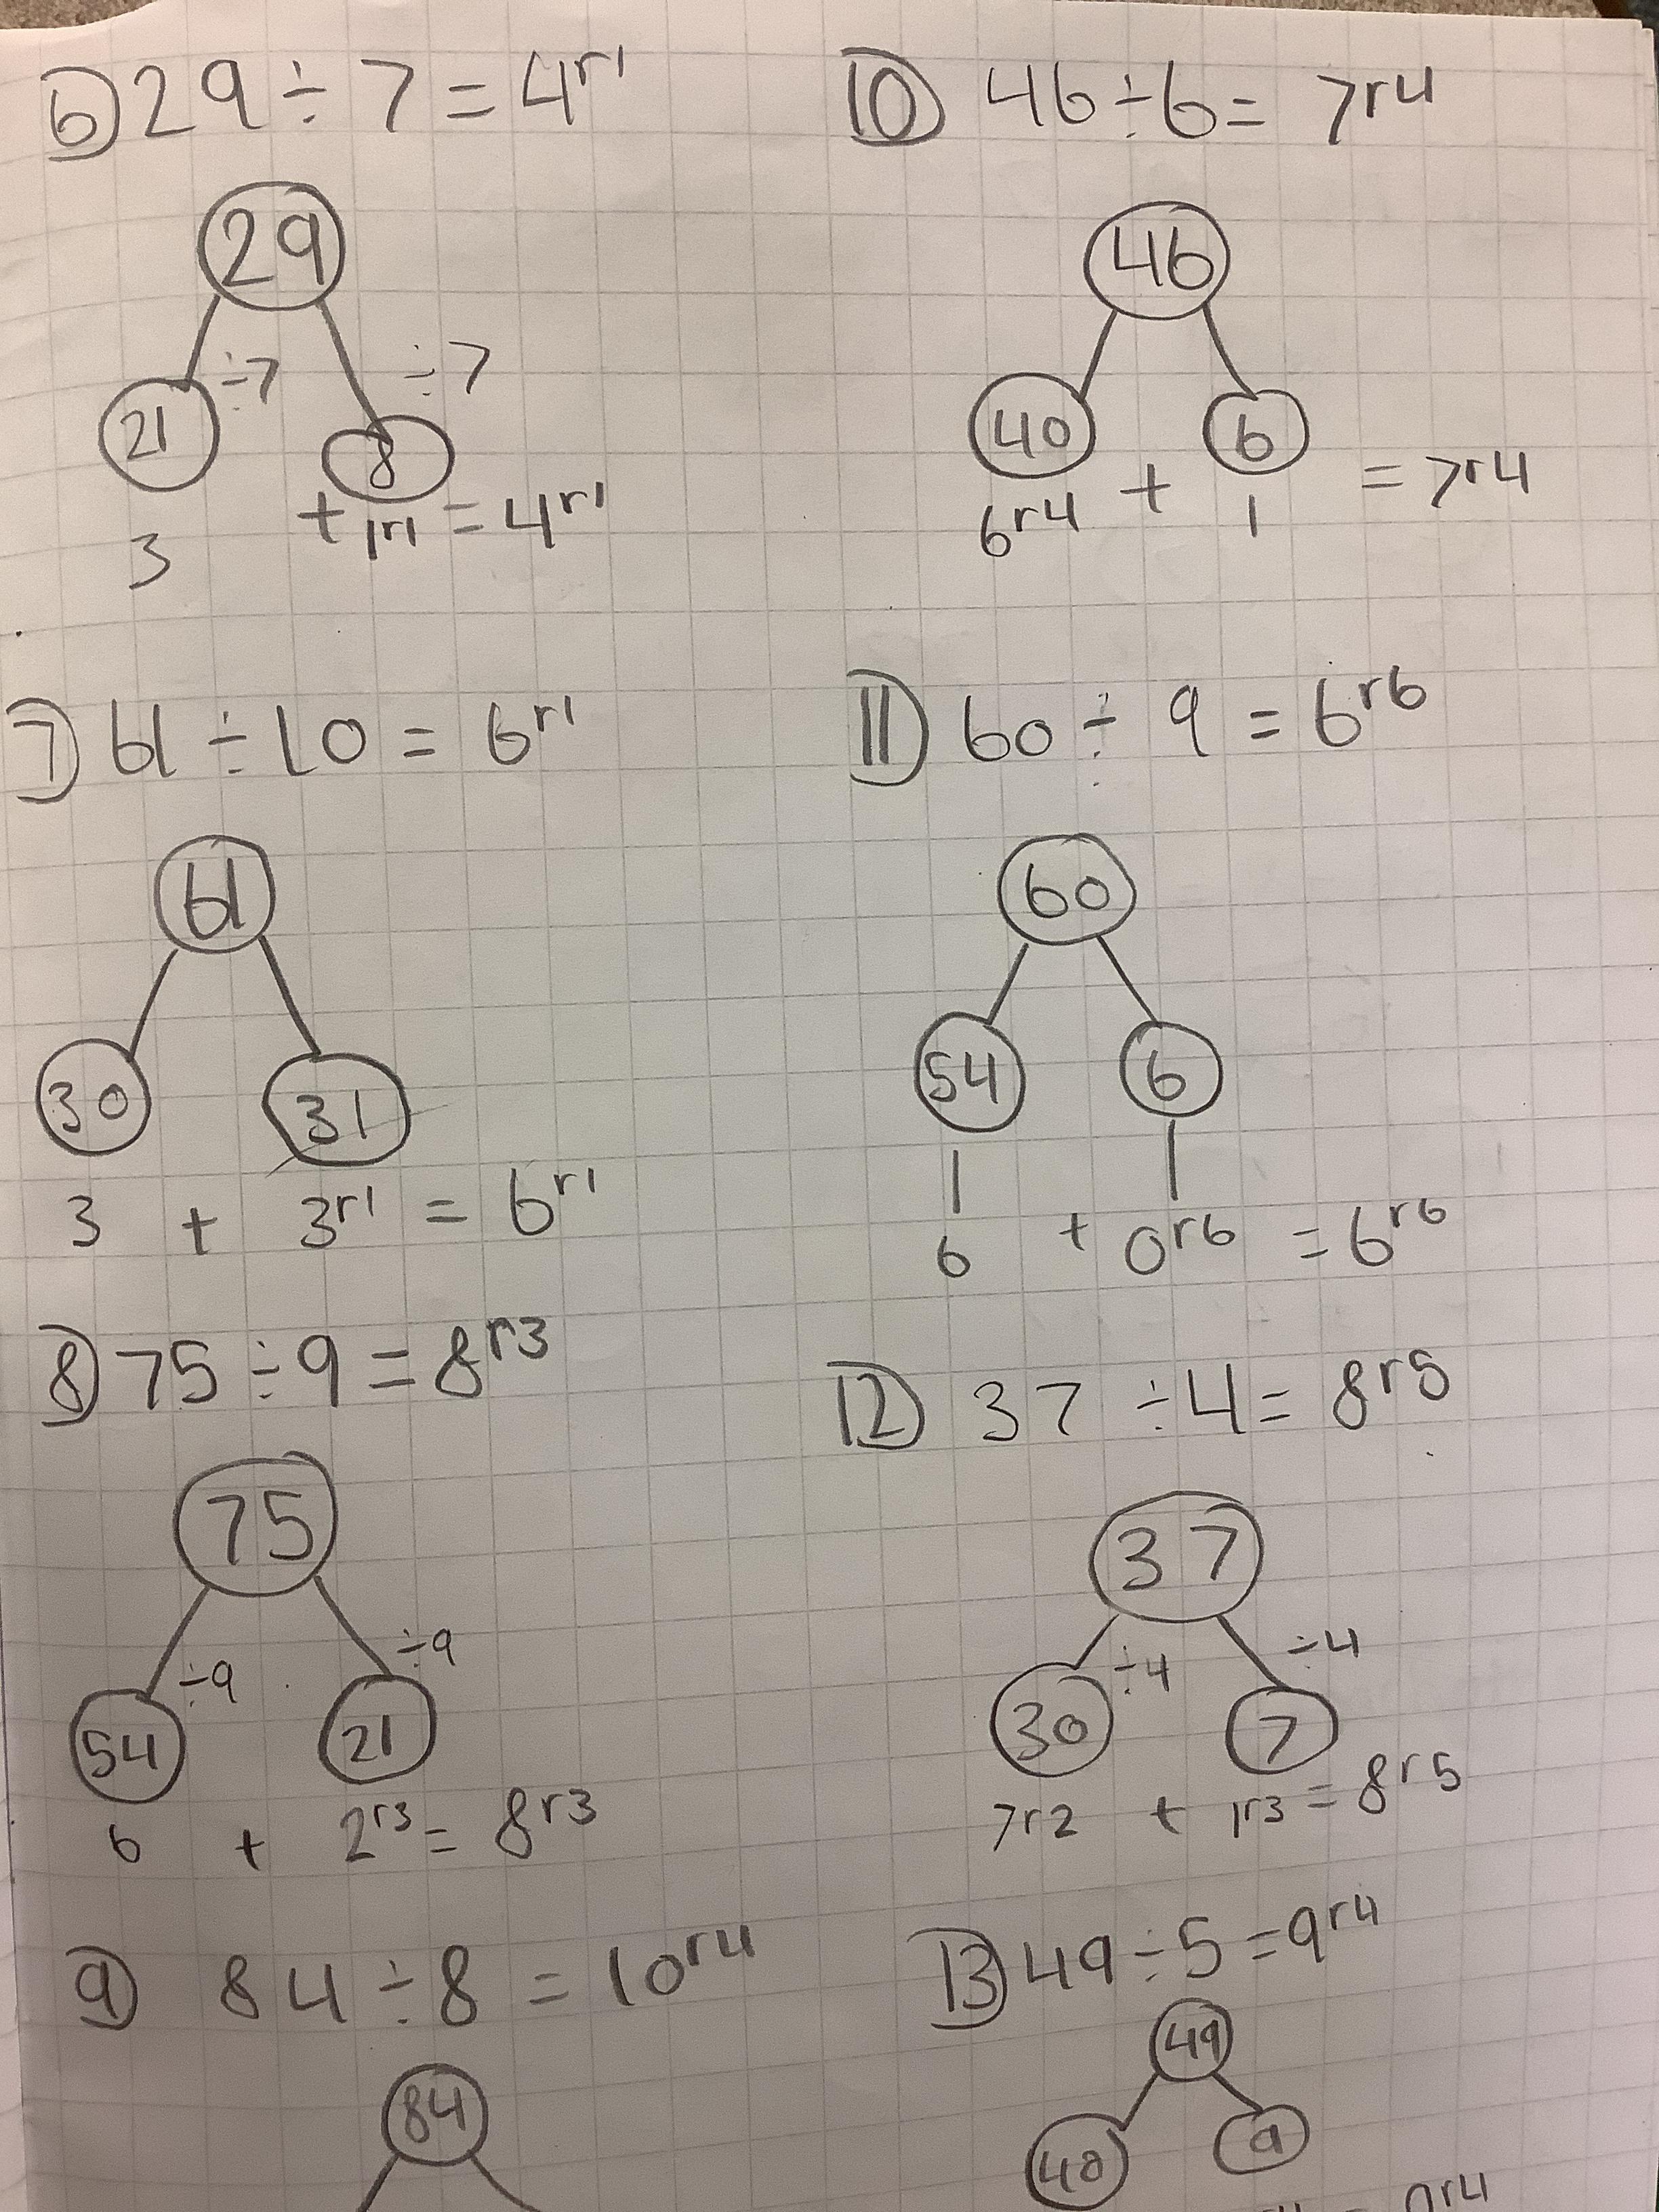 6) 29 ÷ 7 = 4 r1
29
÷7 ÷7
21 8
3 + 1r1 = 4 r1
7) 61 ÷ 10 = 6 r1
61
30 31
3 + 3 r1 = 6 r1
8) 75 ÷ 9 = 8 r3
75
÷9 ÷9
54 21
6 + 2 r3 = 8 r3
9) 84 ÷ 8 = 10 r4
84
10) 46 ÷ 6 = 7 r4
46
40 6
6 r4 + 1 = 7 r4
11) 60 ÷ 9 = 6 r6
60
54 6
6 + 0 r6 = 6 r6
12) 37 ÷ 4 = 8 r5
37
÷4 ÷4
30 7
7r2 + 1r3 = 8 r5
13) 49 ÷ 5 = 9 r4
49
40 9